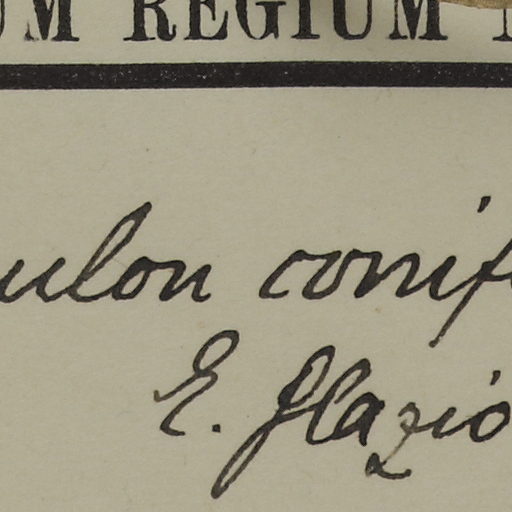 UM REGIUM
ulon conif
E. Glazio